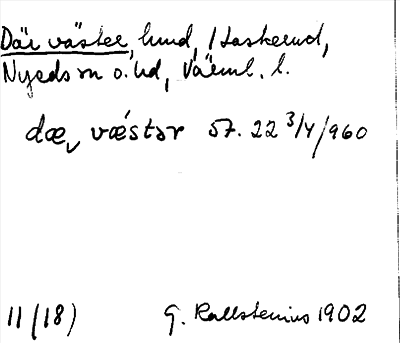 Där väster, hmd, Haskerud,
Nyeds sn o. hd, Värml. l.
dæ, vǽstər st. 22 3/4/960
11 (18) G. Kallstenius 1902